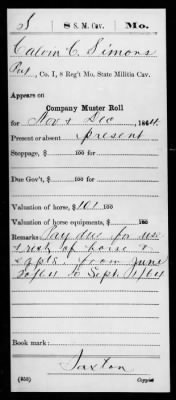 S | 8 S. M. Cav. | Mo.
Calvin C. Simons
Pvt, Co. I, 8 Reg't Mo. State Militia Cav.
Appears on
Company Muster Roll
for Nov & Dec, 1864.
Present or absent present
Stoppage, $ 100 for
Due Gov't, $ 100 for
Valuation of horse, $ 101 100
Valuation of horse equipments, $ 100
Remarks: Pay due for use
& risk of horse &
eqpts from June
30/64 to Sept 1/64
Book mark:
Saxton
(358) Copyist.